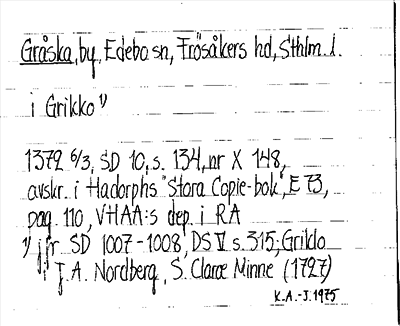 Gråska, by, Edebo sn, Frösåkers hd, Sthlm. l.
i Grikko ¹⁾
1372 6/3, SD 10, s. 134, nr X 148,
avskr. i Hadorphs "Stora Copie-bok", E 73,
pag. 110, VHAA:s dep. i RA
¹⁾ jfr SD 1007-1008, DS V s. 315; Grikko
i J.A. Nordberg, S. Claræ Minne (1727)
K.A.-J. 1975